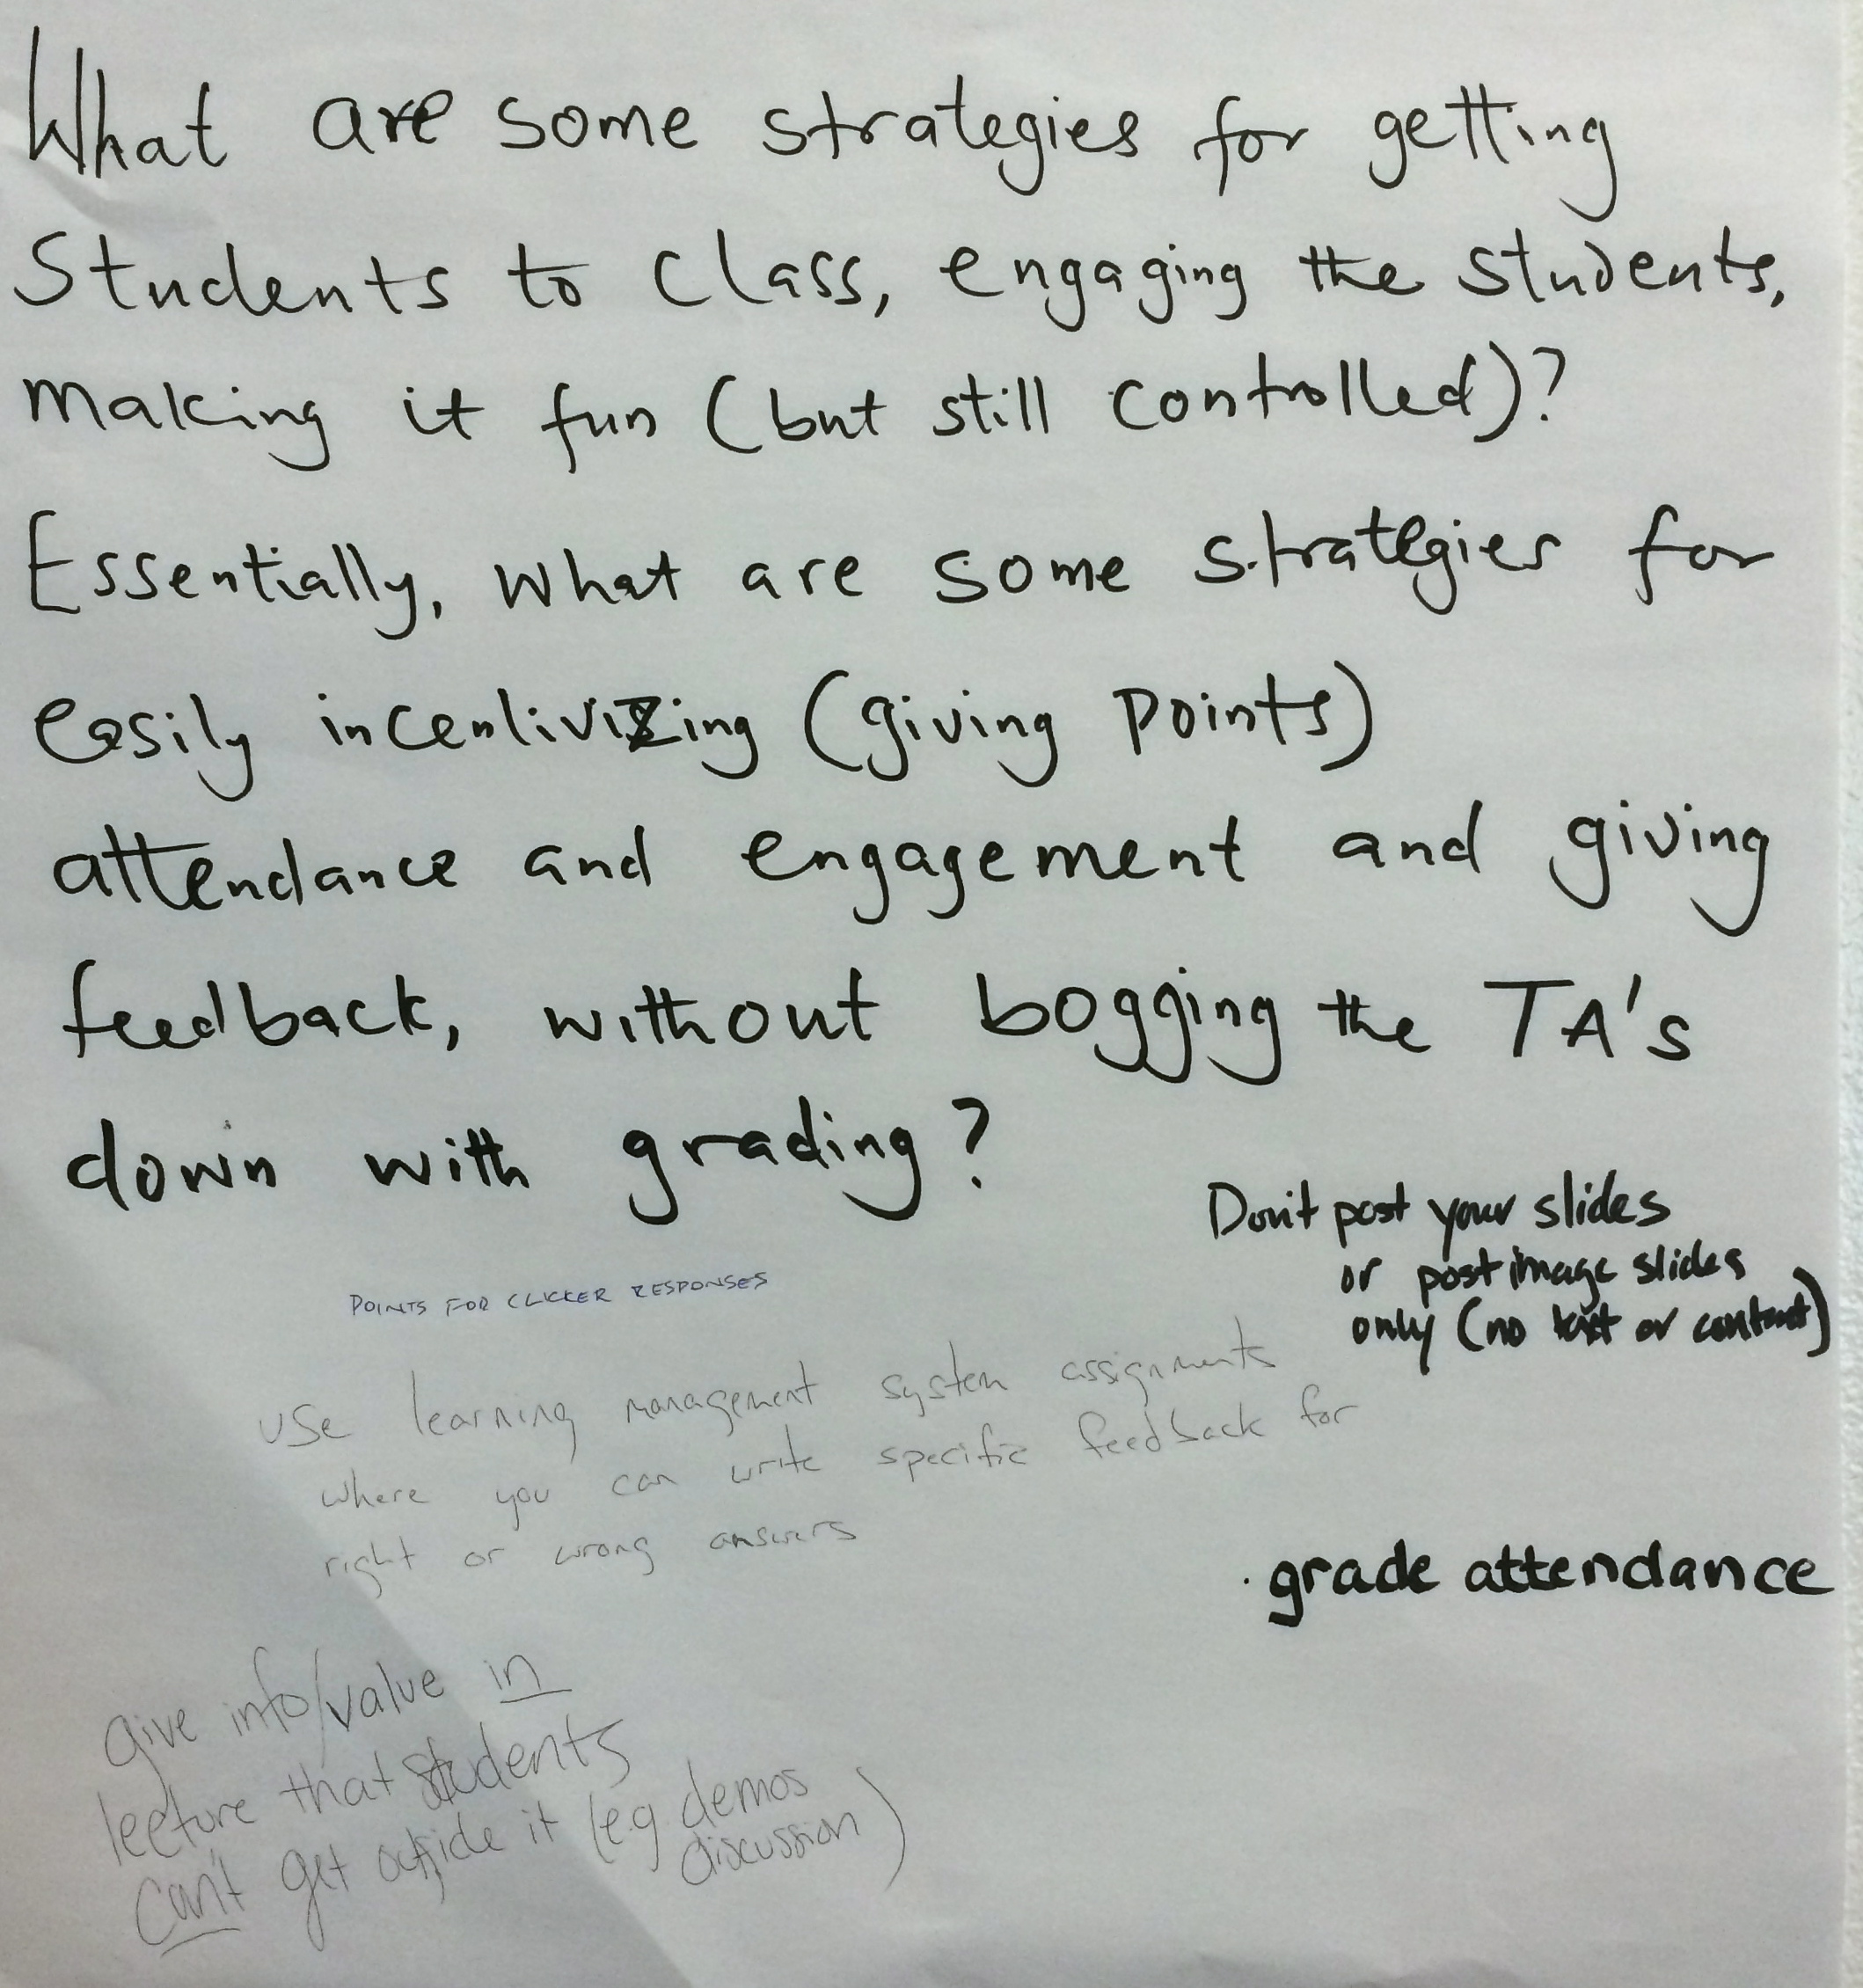 What are some strategies for getting
Students to class, engaging the students,
making it fun (but still controlled)?
Essentially, what are some strategies for
easily incentivizing (giving points)
attendance and engagement and giving
feedback, without bogging the TA's
down with grading?
Don't post your slides
or post image slides
only (no text or content)
POINTS FOR CLICKER RESPONSES
use learning management system assignments
where you can write specific feedback for
right or wrong answers
. grade attendance
Give info/value in
lecture that students
can't get outside it (e.g. demos
discussion)